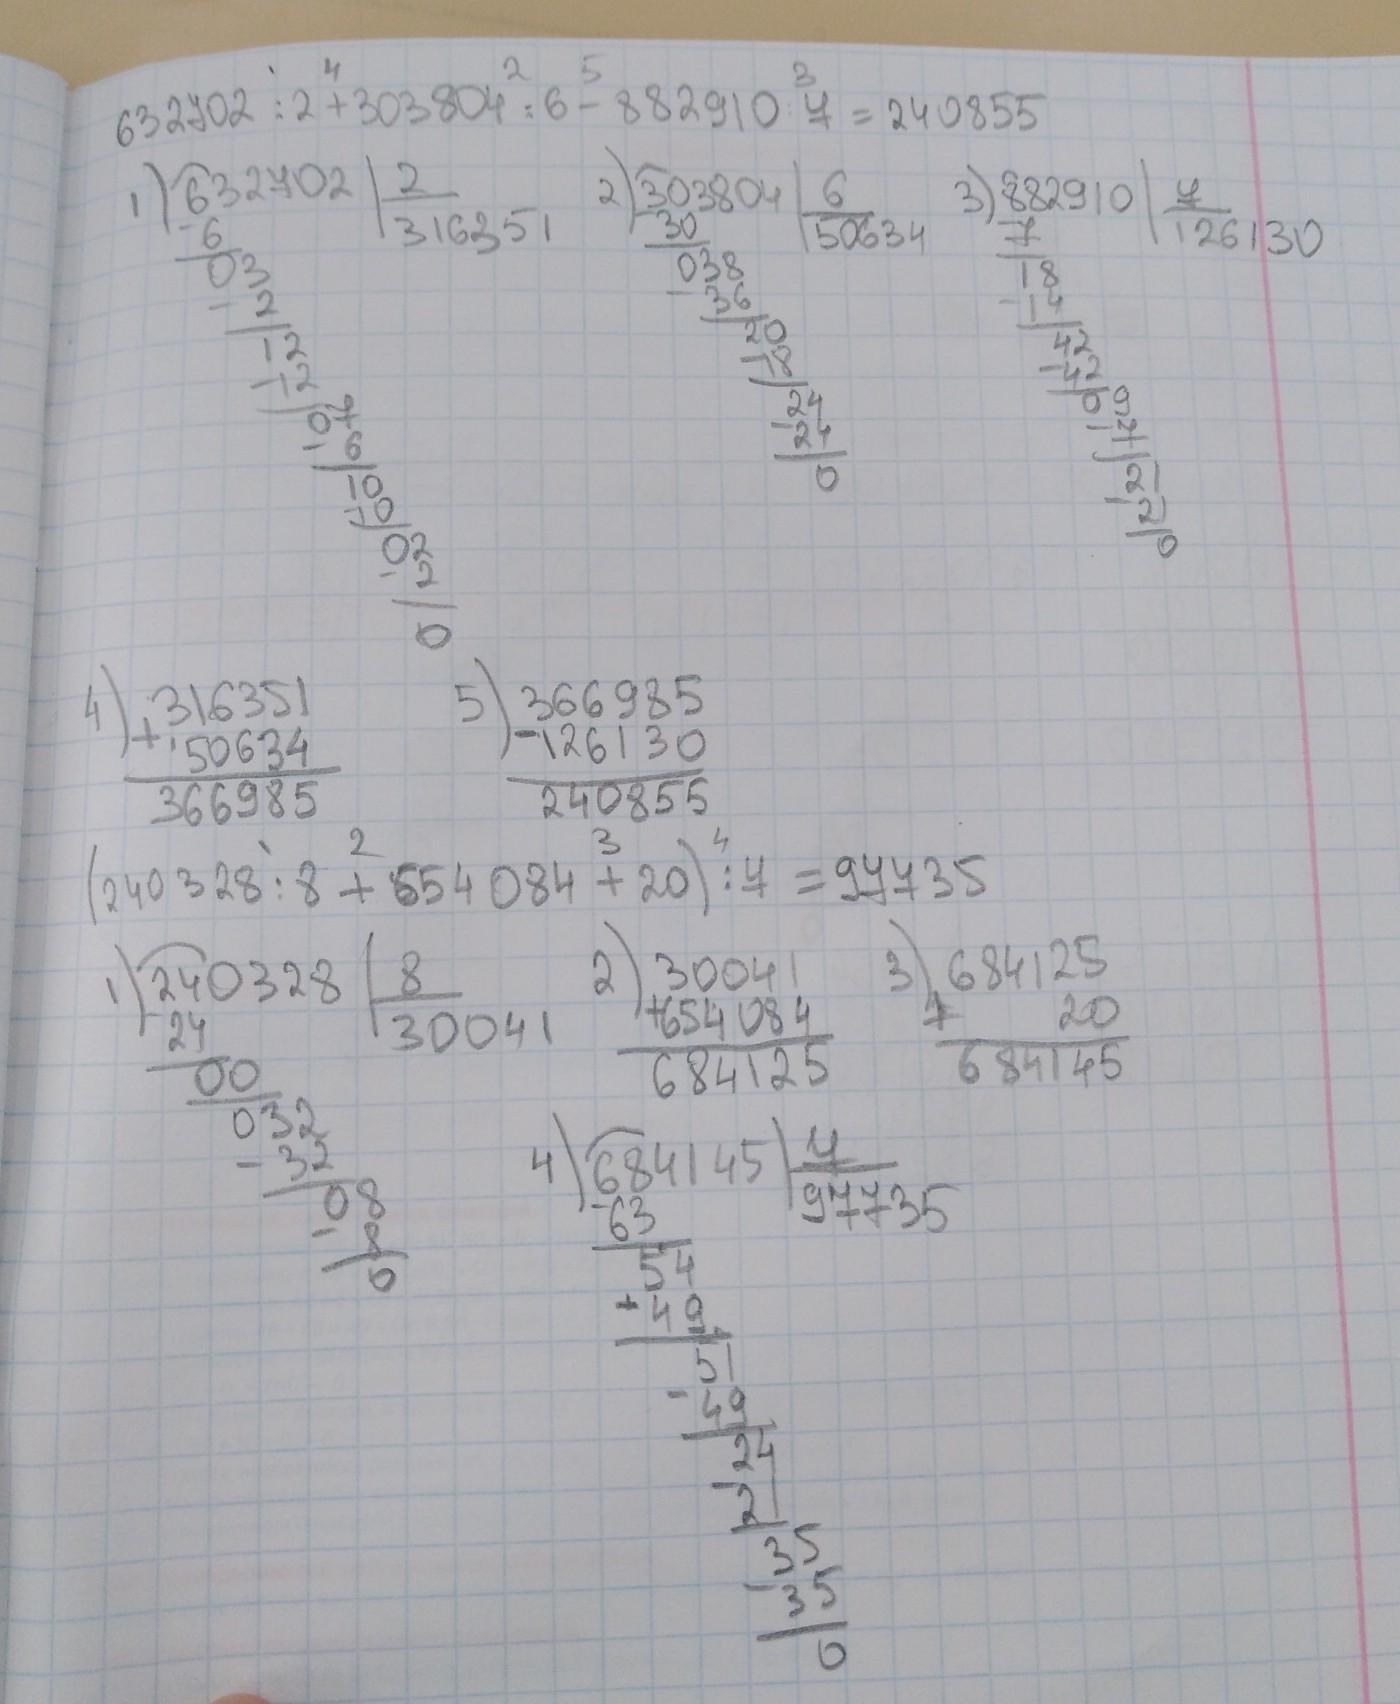 632702 : 2 + 303804 : 6 - 882910 : 7 = 240855
1 4 2 5 3
1) 632702 | 2
316351
- 6
03
- 2
12
- 12
07
- 6
10
- 10
02
- 2
0
2) 303804 | 6
50634
- 30
038
- 36
20
- 18
24
- 24
0
3) 882910 | 7
126130
- 7
18
- 14
42
- 42
09
- 7
21
- 21
0
4) 316351
+ 50634
366985
5) 366985
- 126130
240855
1 2 3 4
(240328 : 8 + 654084 + 20) : 7 = 97735
1) 240328 | 8
30041
- 24
00
032
- 32
08
- 8
0
2) 30041
+ 654084
684125
3) 684125
+ 20
684145
4) 684145 | 7
97735
- 63
54
+ 49
51
- 49
24
- 21
35
- 35
0